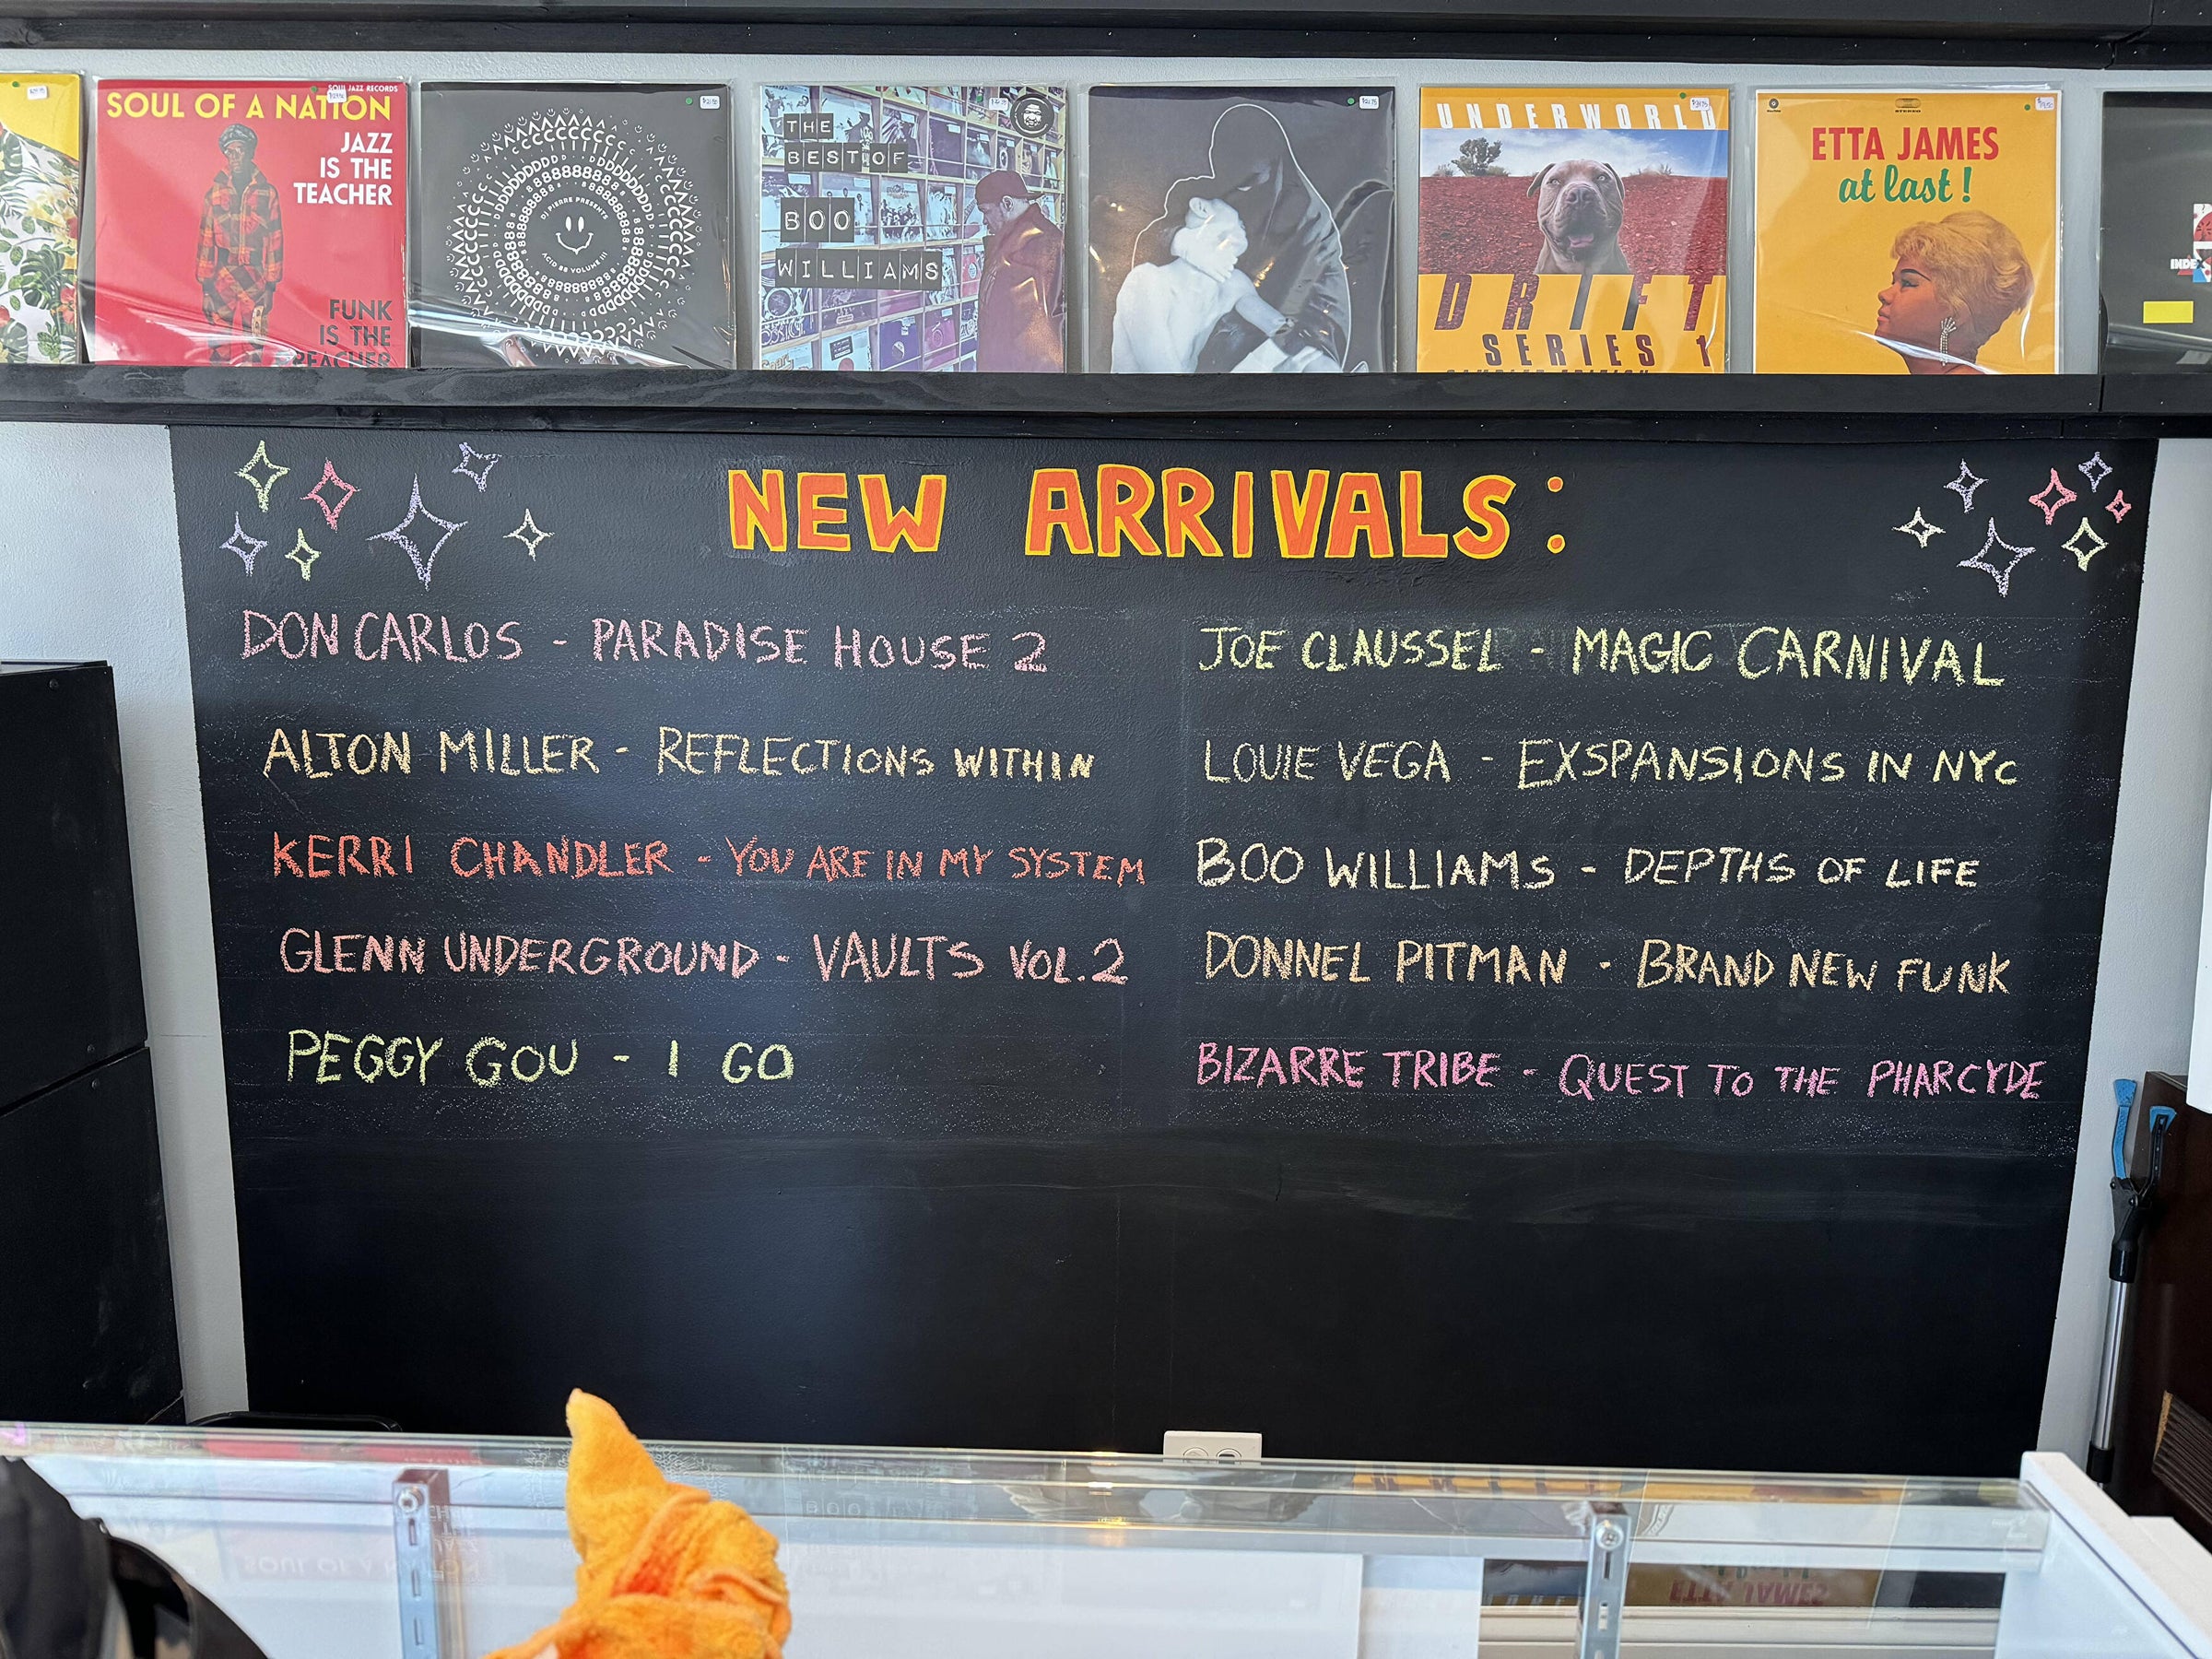 SOUL JAZZ RECORDS
SOUL OF A NATION
JAZZ
IS THE
TEACHER
FUNK
IS THE
PREACHER
DJ PIERRE PRESENTS
ACID 88 VOLUME III
THE
BEST OF
BOO
WILLIAMS
UNDERWORLD
DRIFT
SERIES 1
STEREO
ETTA JAMES
at last!
NEW ARRIVALS:
DON CARLOS - PARADISE HOUSE 2
ALTON MILLER - REFLECTIONS WITHIN
KERRI CHANDLER - YOU ARE IN MY SYSTEM
GLENN UNDERGROUND - VAULTS VOL.2
PEGGY GOU - I GO
JOE CLAUSSEL - MAGIC CARNIVAL
LOUIE VEGA - EXSPANSIONS IN NYC
BOO WILLIAMS - DEPTHS OF LIFE
DONNEL PITMAN - BRAND NEW FUNK
BIZARRE TRIBE - QUEST TO THE PHARCYDE